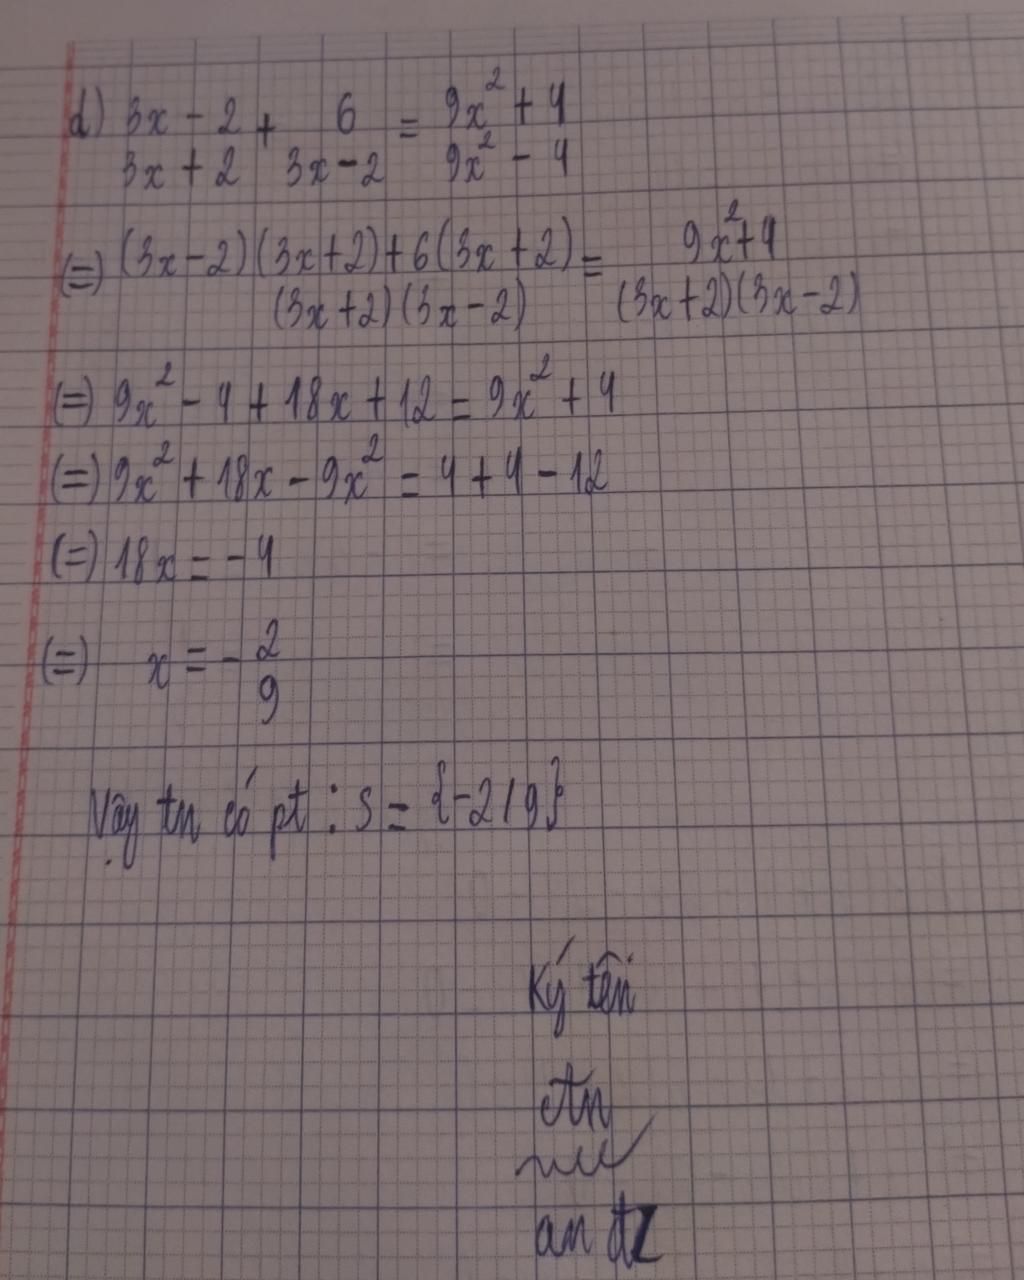 d) 3x - 2 + 6 = 9x² + 4
3x + 2 3x - 2 9x² - 4
(=) (3x - 2)(3x + 2) + 6(3x + 2) = 9x² + 4
(3x + 2)(3x - 2) (3x + 2)(3x - 2)
(=) 9x² - 4 + 18x + 12 = 9x² + 4
(=) 9x² + 18x - 9x² = 4 + 4 - 12
(=) 18x = - 4
(=) x = - 2
9
Vậy tn có pt : S = {-2/9}
Ký tên
An
an đz